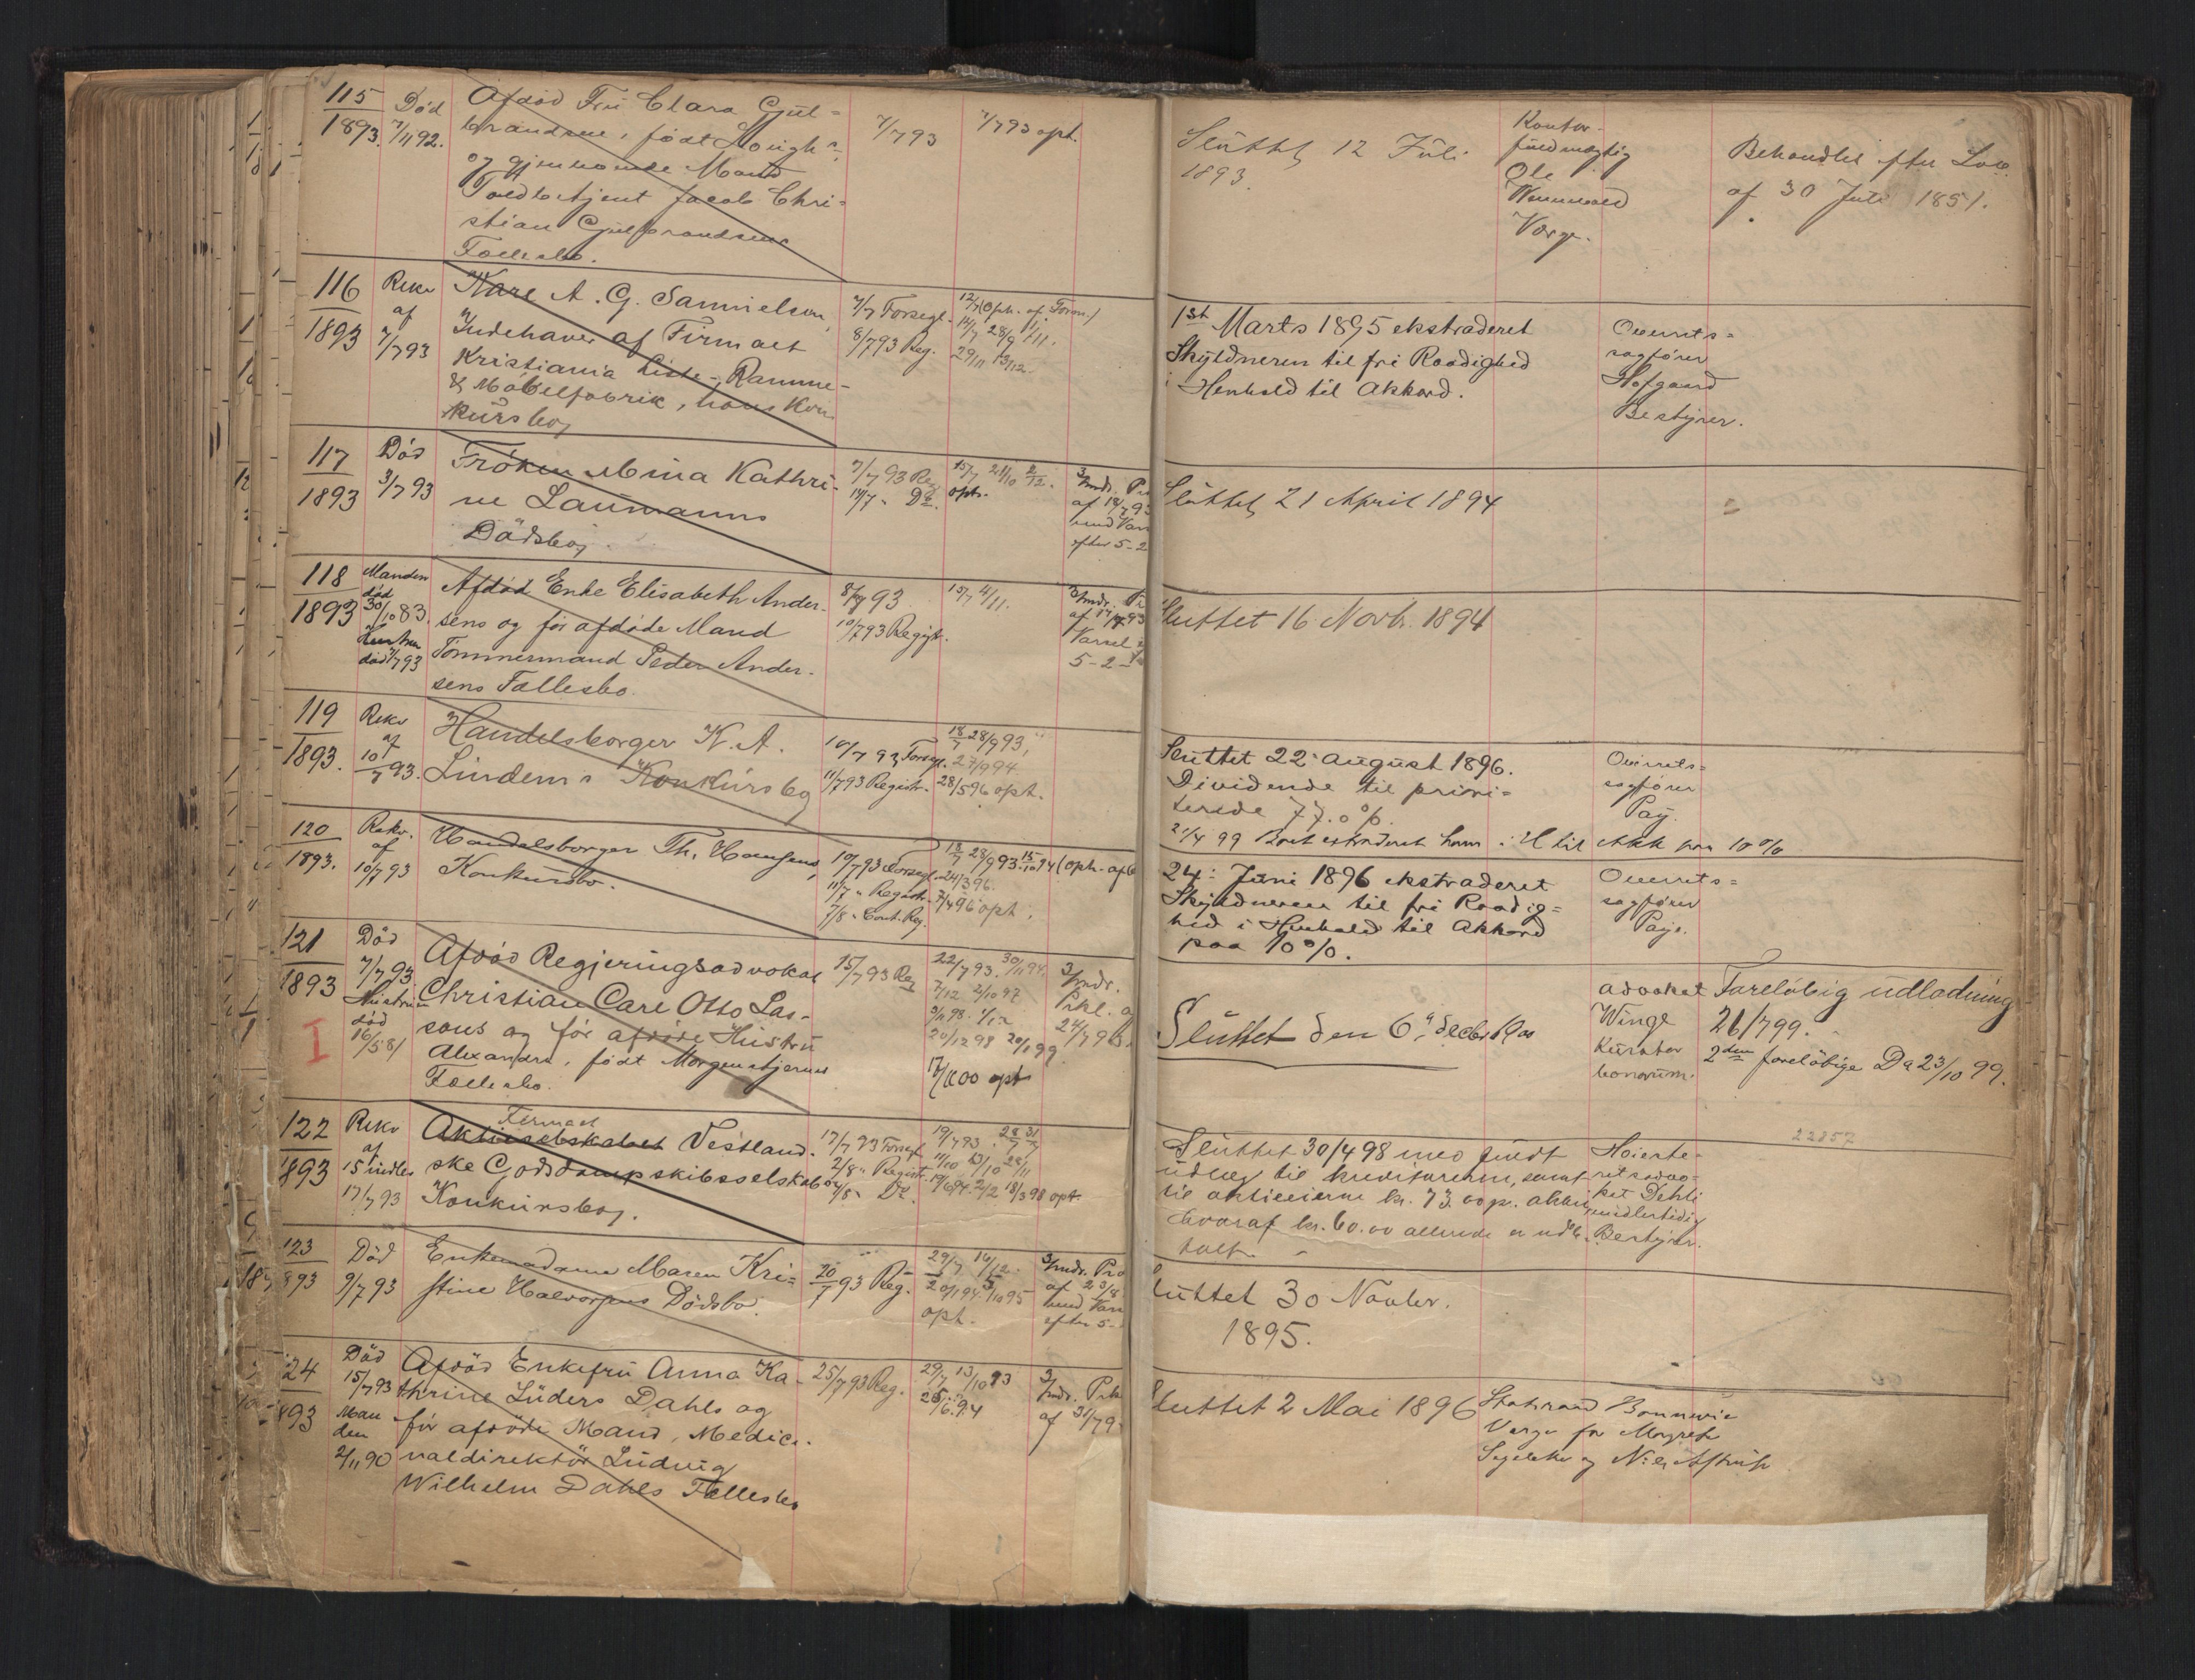 115
1893.
Död
7/11 92.
Afdöd Frü Clara Gül-
brandsen, födt
og gjenlevende Mand
Toldbetjent Jacob Chri-
stian Gülbrandsens
Fællesbo.
7/7 93
7/7 93 opt.
Slüttet 12 Jüli
1893.
Kontor-
füldmægtig
Ole
Verge.
Behandlet efter Lov
af 30 Juli 1851.
116
1893
Rekv
af
7/7 93
Karl A. G. Samuelson,
Indehaver af Firmaet
Kristiania Liste-, Ramme-
& Möbelfabrik, hans Kon-
kürsboj
7/7 Forsegl.
8/7 93 Reg.
1st Marts 1895 ekstraderet
Skyldneren til fri Raadighed
i Henhold til Akkord.
Overrets-
sagförer
Hofgaard
Bestyrer.
117
1893
Död
3/7 93
Fröken Mina Kathri-
ne Laümanns
Dödsboj.
7/7 93 Reg
14/7 " Do.
15/7 21/10 2/12.
opt.
3/mdr.
Slüttet 21 April 1894
118
1893
Manden
död
30/10 83.
Hustrun
död 7/7 93
Afdöd Enke Elisabeth Ander-
sens og för afdöde Mand
Tömmermand Peder Ander-
sens Fællesbo.
8/7 93
10/7 93 Registr.
15/7 4/11.
3/mdr.
Varsel
5-2-
Sluttet 16 Novbr. 1894
119
1893.
Rekv
af
10/7 93.
Handelsborger K. A.
Lindems Konkürsboj
10/7 93 Forsegl.
11/7 93 Registr.
18/7 28/9 93,
27/9 94
28/5 96 opt.
Slüttet 22 August 1896.
Dividende til priori-
terede 77. %.
Overrets-
sagförer
Pay.
21/4 99 Boet extraderet ham i H til Akk paa 10%
120
1893.
Rekv.
af
10/7 93
Handelsborger Th. Hansens
Konkursbo.
10/7 93 Forsegl.
11/7 " Registr.
7/8 " Cont. Reg.
18/7 28/9 93. 15/10 94
24/3 96.
7/4 96 opt.
24. Jüni 1896 ekstraderet
Skyldneren til fri Raadig-
hed i Henhold til Akkord
paa 10%.
Overrets-
sagförer
Pay.
121
1893
I
Död
7/7 93
Hüstrün
död
16/5 81
Afdöd Regjeringsadvokat
Christian Carl Otto Las-
sons og för afdöde Hüstrü
Alexandra, födt Morgenstjernes
Fællesbo.
15/7 93 Reg
22/7 93. 30/11 94.
7/12 2/10 97
20/12 98 20/1 99.
opt
3/mdr.
Prkl.
Slüttet den 6. decbr 1900
advokat
Winge
Kürator
bonorum.
Foreløbig üdlodning
26/7 99.
2den foreløbige Do 23/10 99.
122
1893
Rekv
af
15 indlev
17/7 93
Firmaet
Aktieselskabet Vestland-
ske Godsdampskibsselskabs
Konkürsboj.
17/7 93 Forsegl
2/8 " Registr.
4/8 " Do.
19/7 93. 28/7 31/7
11/10 13/10 28/11
19/6 94. 2/2 18/3 98 opt
22857
Slüttet 30/4 98 med füldt
üdlæg til kreditorerne, samt
til aktieeierne kr. 73.00 pr. aktie,
hvoraf kr. 60.00 allerede er udb.
talt.
Høieste-
retsadvo-
kat Dahl
midlertidig
Bestyrer.
123
1893
Död
9/7 93
Enkemadame Maren Kri-
stine Halvorsens Dödsbo.
20/7 93 Reg.
29/7 14/12.
20/1 94. 5/10 95
opt.
3/mdr.
Slüttet 30 Novbr.
1895.
124
1893
Död
15/7 93
Man
den
2/11 90
Afdöd Enkefrü Anna Ka-
thrine Lüders Dahls og
för afdöde Mand, Medici-
naldirektör Lüdvig
Wilhelm Dahls Fællesbo
25/7 93 Reg.
29/7 13/10 93
25/6 94
3/mdr. Prk
af 31/7 93
Sluttet 2 Mai 1896
Statsraad Bonnevie
Verge for Margrete